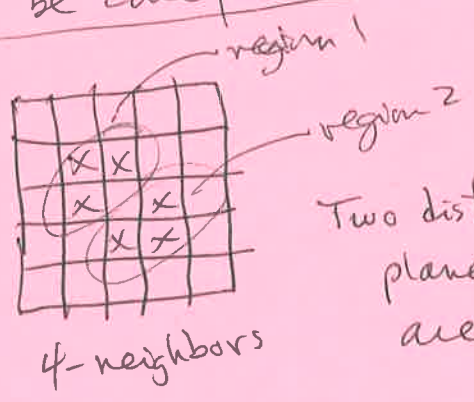 be
region 1
region 2
x x
x x
x x
Two dist
plane
are
4-neighbors